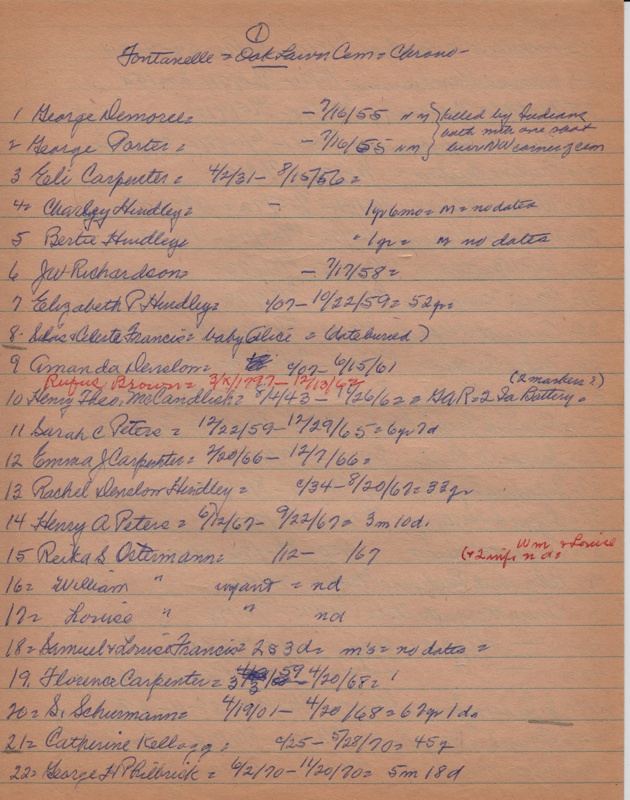 ①
Fontanelle = Oak Lawn Cem = Chrono-
1 George Demoree = - 7/16/55 N M } killed by Indians
2 George Porter = - 7/16/55 N M } both with one shot
over NW corner of cem
3 Eli Carpenter = 4/2/31 - 8/15/56 =
4 = Hindley = - 1yr 6mo = M = no dates
5 Bertie Hindley " 1yr = M no dates
6 JW Richardson = - 7/17/58 =
7 Elizabeth P Hindley = c/07 - 10/22/59 = 52yr =
8 - Silas & Celeste Francis = baby Alice = (date buried)
9 Amanda Denslow = c/07 - 6/15/61
Rufus Brown = 3/x/1797 - 12/13/62 (2 markers?)
10 Henry Theo. McCandlish = 8/4/43 - 1/26/62 = GAR = 2 Ia Battery =
11 Sarah C Peters = 12/22/59 - 12/29/65 = 6yr 7d
12 Emma J Carpenter = 2/20/66 - 12/7/66 =
13 Rachel Denslow Hindley = c/34 - 8/20/67 = 33yr
14 Henry A Peters = 6/12/67 - 9/22/67 = 3m 10d.
15 Reika S. Ostermann = /12 - /67 (+2 inf. nds Wm & Louise
16 = William " infant = nd
17 = Louise " " nd
18 = Samuel & Louise Francis = 2 s 3d = m's = no dates =
19. Florence Carpenter = 59 - 4/20/68 = 1
20 = S. Schurmann = 4/19/01 - 4/20/68 = 67yr 1da
21 = Catherine Kellogg = c/25 - 5/28/70 = 45y
22 = George H Philbrick = 6/2/70 - 11/20/70 = 5m 18d